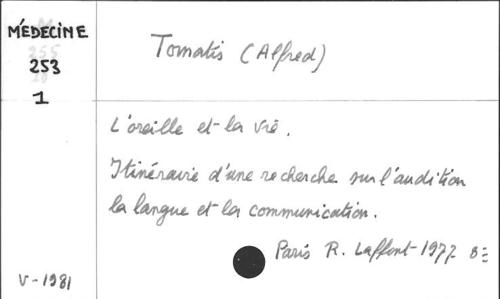 MÉDECINE
253
1
Tomatis (Alfred)
L'oreille et la vie.
Itinéraire d'une recherche sur l'audition
la langue et la communication.
Paris R. Laffont 1977
V-1981